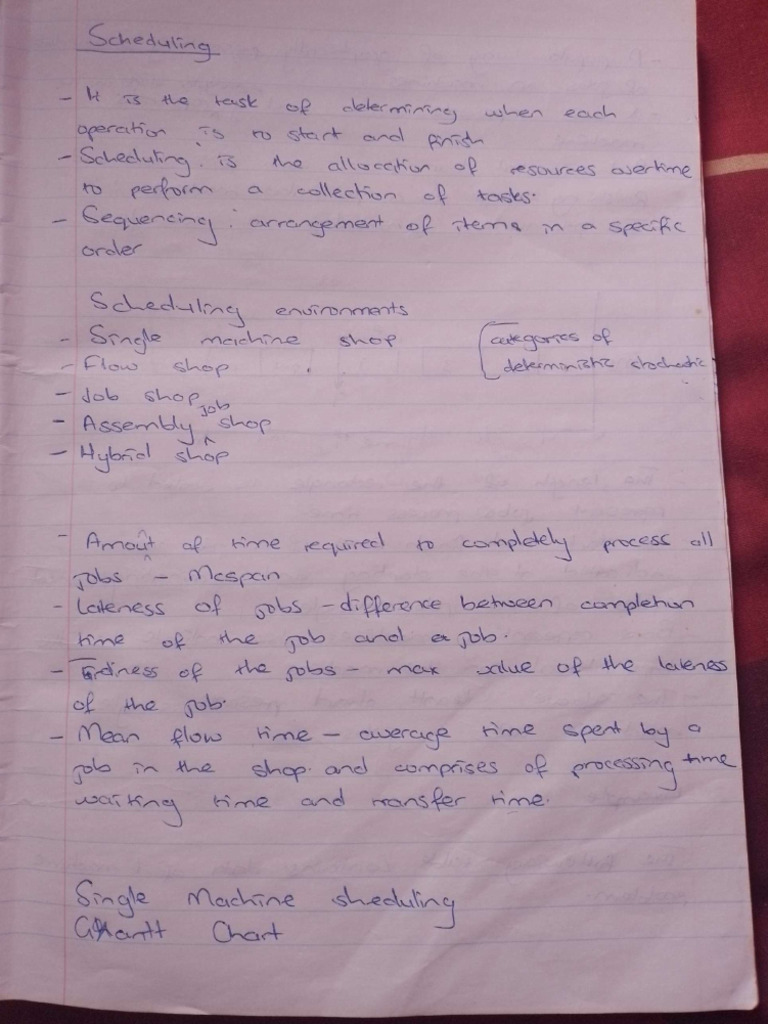 Scheduling
- It is the task of determining when each
operation is to start and finish
- Scheduling: is the allocation of resources overtime
to perform a collection of tasks.
- Sequencing: arrangement of items in a specific
order
Scheduling environments
- Single machine shop
- Flow shop
- Job shop
- Assembly job shop
- Hybrid shop
categories of
deterministic stochastic
- Amout of time required to completely process all
jobs - Mcspan
- Lateness of jobs - difference between completion
time of the job and a job.
- Tardiness of the jobs - max value of the lateness
of the job.
- Mean flow time - average time spent by a
job in the shop and comprises of processing time
waiting time and transfer time.
Single Machine sheduling
Gantt Chart